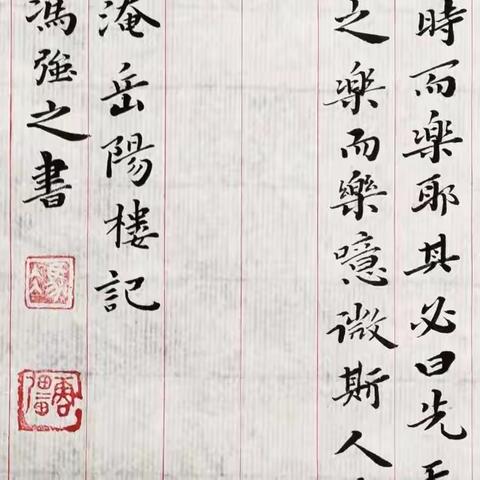 時而樂耶其必曰先天
之樂而樂噫微斯人
淹岳陽樓記
馮強之書